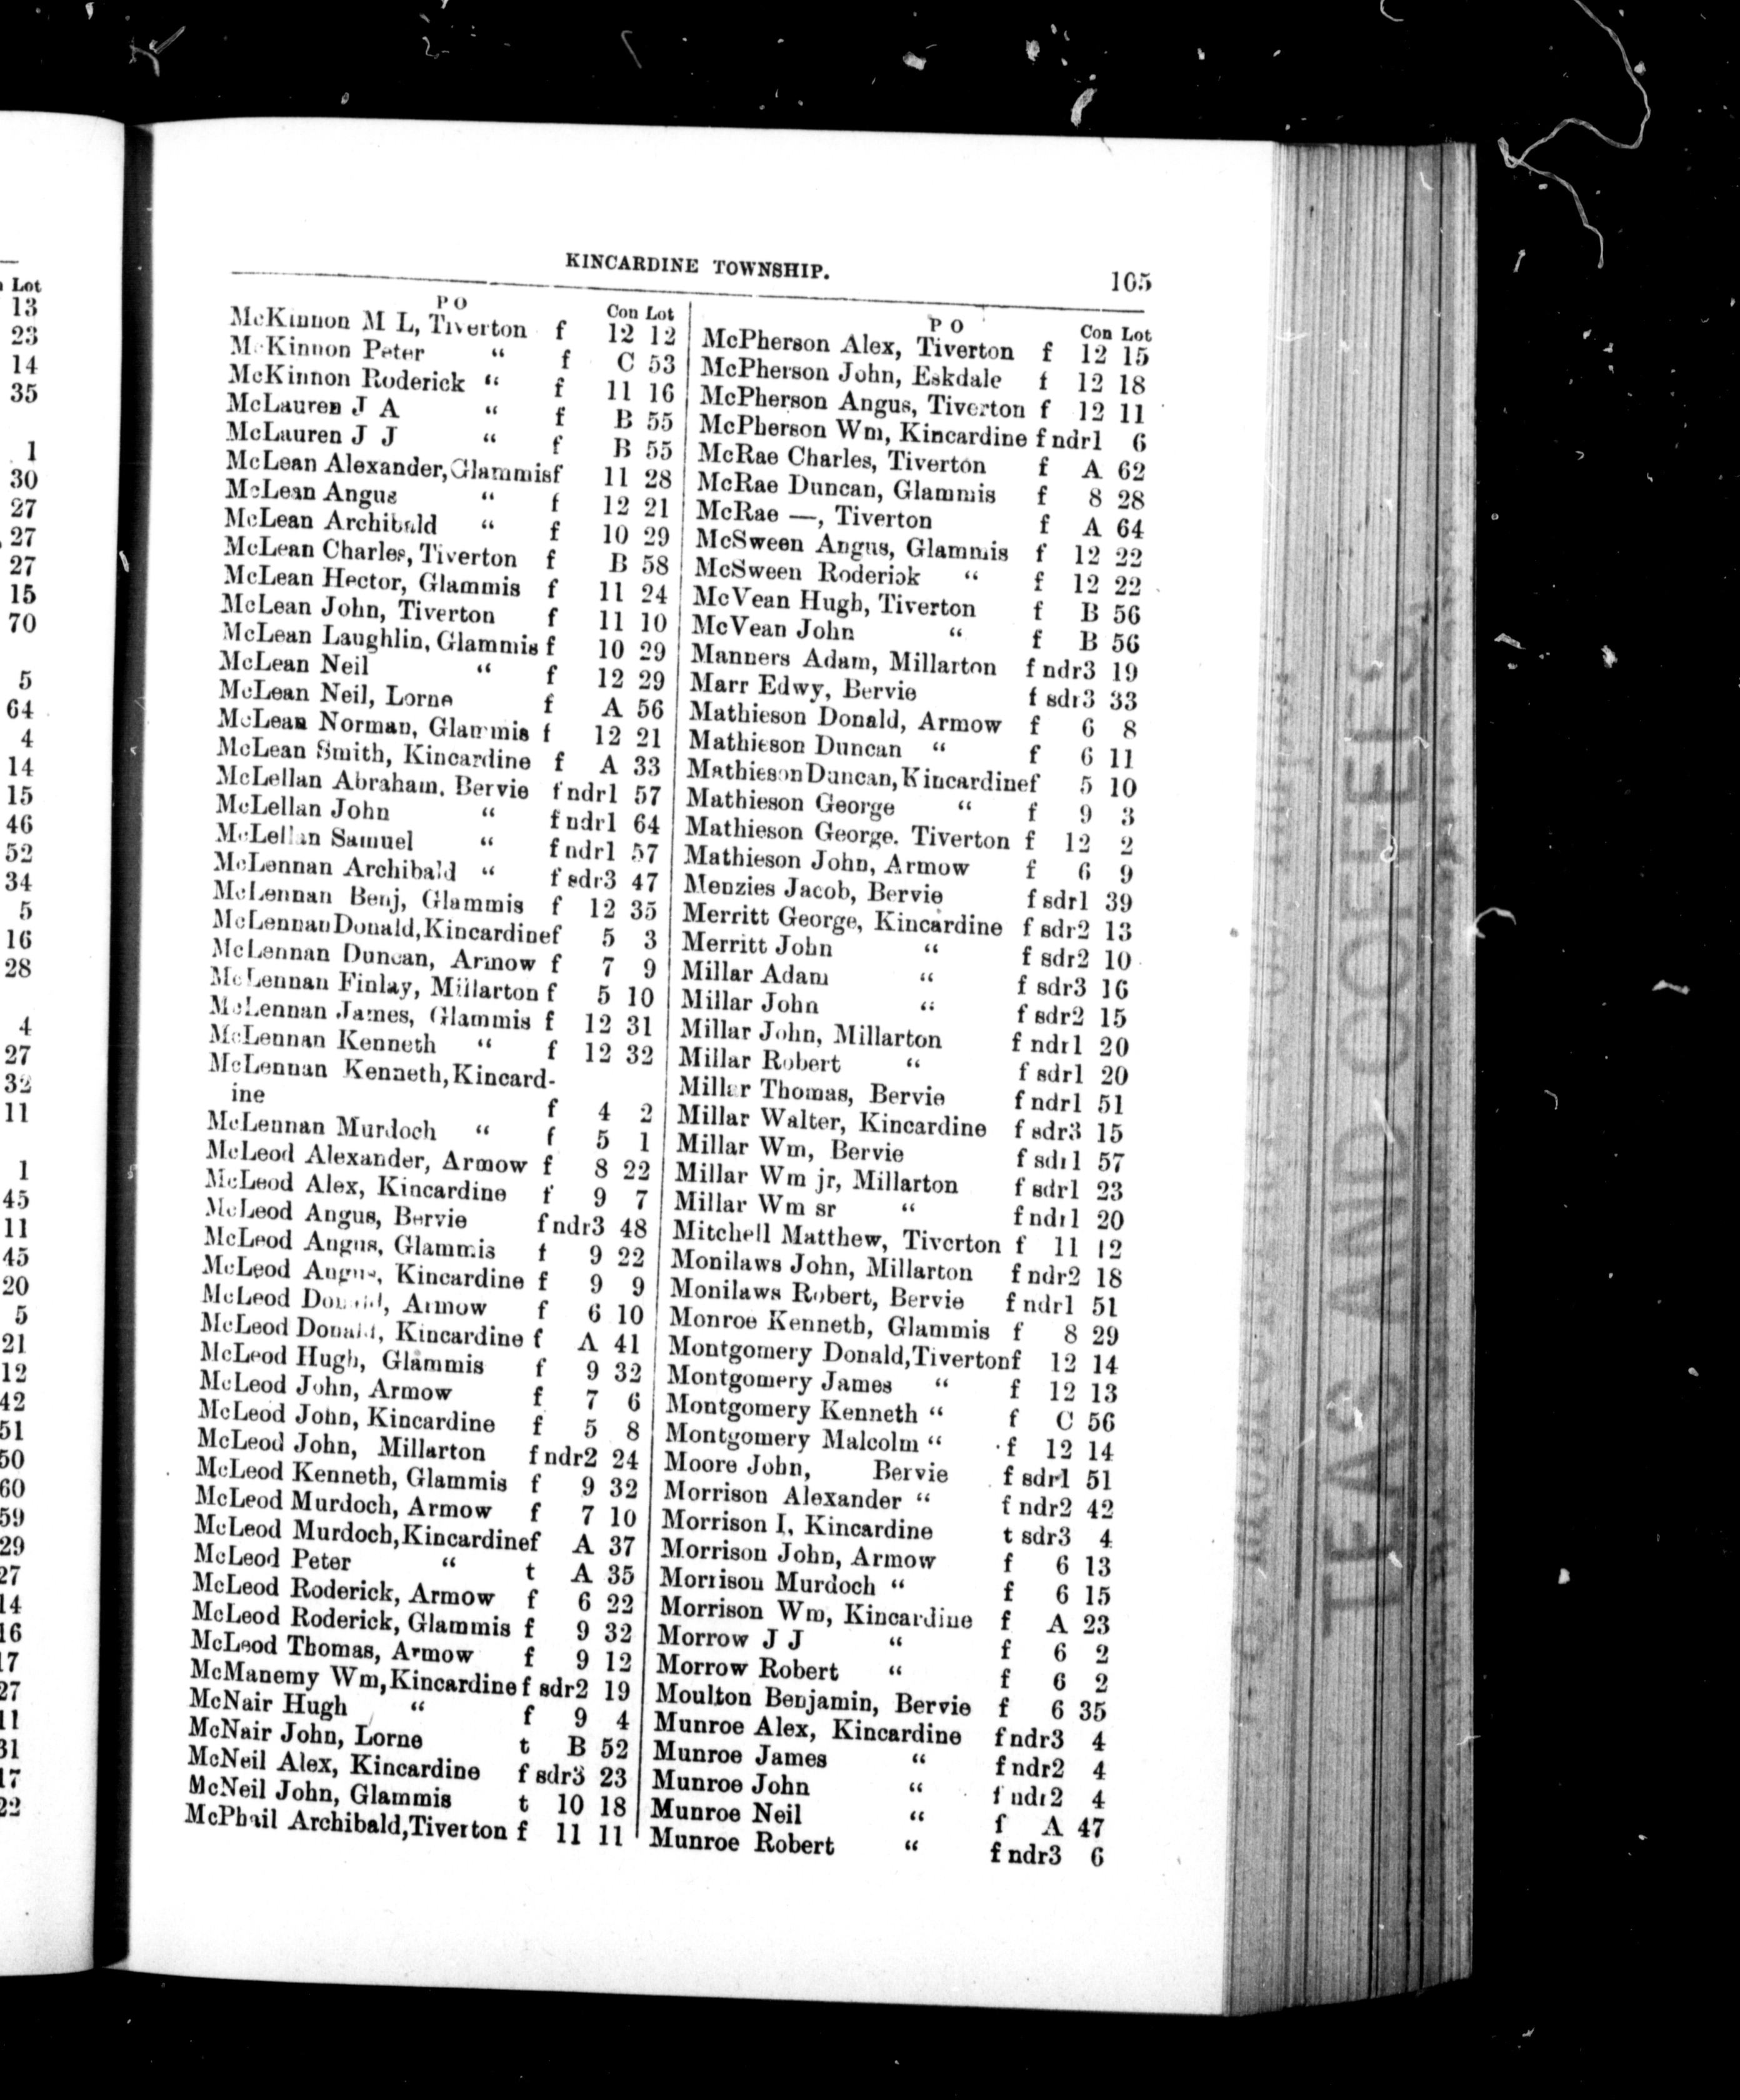 Lot
13
23
14
35
1
30
27
27
27
15
70
5
64
4
14
15
46
52
34
5
16
28
4
27
32
11
1
45
11
45
20
5
21
12
42
51
50
60
59
29
27
14
16
17
27
11
31
17
22
KINCARDINE TOWNSHIP. 105
P O Con Lot
McKinnon M L, Tiverton f 12 12
McKinnon Peter “ f C 53
McKinnon Roderick “ f 11 16
McLauren J A “ f B 55
McLauren J J “ f B 55
McLean Alexander, Glammis f 11 28
McLean Angus “ f 12 21
McLean Archibald “ f 10 29
McLean Charles, Tiverton f B 58
McLean Hector, Glammis f 11 24
McLean John, Tiverton f 11 10
McLean Laughlin, Glammis f 10 29
McLean Neil “ f 12 29
McLean Neil, Lorne f A 56
McLean Norman, Glammis f 12 21
McLean Smith, Kincardine f A 33
McLellan Abraham, Bervie f ndr1 57
McLellan John “ f ndr1 64
McLellan Samuel “ f ndr1 57
McLennan Archibald “ f sdr3 47
McLennan Benj, Glammis f 12 35
McLennan Donald, Kincardine f 5 3
McLennan Duncan, Armow f 7 9
McLennan Finlay, Millarton f 5 10
McLennan James, Glammis f 12 31
McLennan Kenneth “ f 12 32
McLennan Kenneth, Kincard-
ine f 4 2
McLennan Murdoch “ f 5 1
McLeod Alexander, Armow f 8 22
McLeod Alex, Kincardine f 9 7
McLeod Angus, Bervie f ndr3 48
McLeod Angus, Glammis f 9 22
McLeod Angus, Kincardine f 9 9
McLeod Donald, Armow f 6 10
McLeod Donald, Kincardine f A 41
McLeod Hugh, Glammis f 9 32
McLeod John, Armow f 7 6
McLeod John, Kincardine f 5 8
McLeod John, Millarton f ndr2 24
McLeod Kenneth, Glammis f 9 32
McLeod Murdoch, Armow f 7 10
McLeod Murdoch, Kincardine f A 37
McLeod Peter “ t A 35
McLeod Roderick, Armow f 6 22
McLeod Roderick, Glammis f 9 32
McLeod Thomas, Armow f 9 12
McManemy Wm, Kincardine f sdr2 19
McNair Hugh “ f 9 4
McNair John, Lorne t B 52
McNeil Alex, Kincardine f sdr3 23
McNeil John, Glammis t 10 18
McPhail Archibald, Tiverton f 11 11
P O Con Lot
McPherson Alex, Tiverton f 12 15
McPherson John, Eskdale f 12 18
McPherson Angus, Tiverton f 12 11
McPherson Wm, Kincardine f ndr1 6
McRae Charles, Tiverton f A 62
McRae Duncan, Glammis f 8 28
McRae —, Tiverton f A 64
McSween Angus, Glammis f 12 22
McSween Roderick “ f 12 22
McVean Hugh, Tiverton f B 56
McVean John “ f B 56
Manners Adam, Millarton f ndr3 19
Marr Edwy, Bervie f sdr3 33
Mathieson Donald, Armow f 6 8
Mathieson Duncan “ f 6 11
Mathieson Duncan, Kincardine f 5 10
Mathieson George “ f 9 3
Mathieson George. Tiverton f 12 2
Mathieson John, Armow f 6 9
Menzies Jacob, Bervie f sdr1 39
Merritt George, Kincardine f sdr2 13
Merritt John “ f sdr2 10
Millar Adam “ f sdr3 16
Millar John “ f sdr2 15
Millar John, Millarton f ndr1 20
Millar Robert “ f sdr1 20
Millar Thomas, Bervie f ndr1 51
Millar Walter, Kincardine f sdr3 15
Millar Wm, Bervie f sdr1 57
Millar Wm jr, Millarton f sdr1 23
Millar Wm sr “ f ndr1 20
Mitchell Matthew, Tiverton f 11 12
Monilaws John, Millarton f ndr2 18
Monilaws Robert, Bervie f ndr1 51
Monroe Kenneth, Glammis f 8 29
Montgomery Donald, Tiverton f 12 14
Montgomery James “ f 12 13
Montgomery Kenneth “ f C 56
Montgomery Malcolm “ f 12 14
Moore John, Bervie f sdr1 51
Morrison Alexander “ f ndr2 42
Morrison I, Kincardine t sdr3 4
Morrison John, Armow f 6 13
Morrison Murdoch “ f 6 15
Morrison Wm, Kincardine f A 23
Morrow J J “ f 6 2
Morrow Robert “ f 6 2
Moulton Benjamin, Bervie f 6 35
Munroe Alex, Kincardine f ndr3 4
Munroe James “ f ndr2 4
Munroe John “ f ndr2 4
Munroe Neil “ f A 47
Munroe Robert “ f ndr3 6
TEAS AND COFFEES,